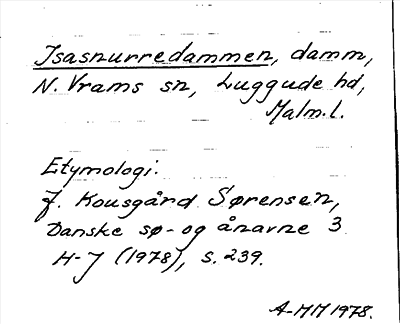 Isasnurredammen, damm,
N. Vrams sn, Luggude hd,
Malm.l.
Etymologi:
J. Kousgård Sørensen,
Danske sø- og ånavne 3
H-J (1978), s. 239.
A-MM 1978.